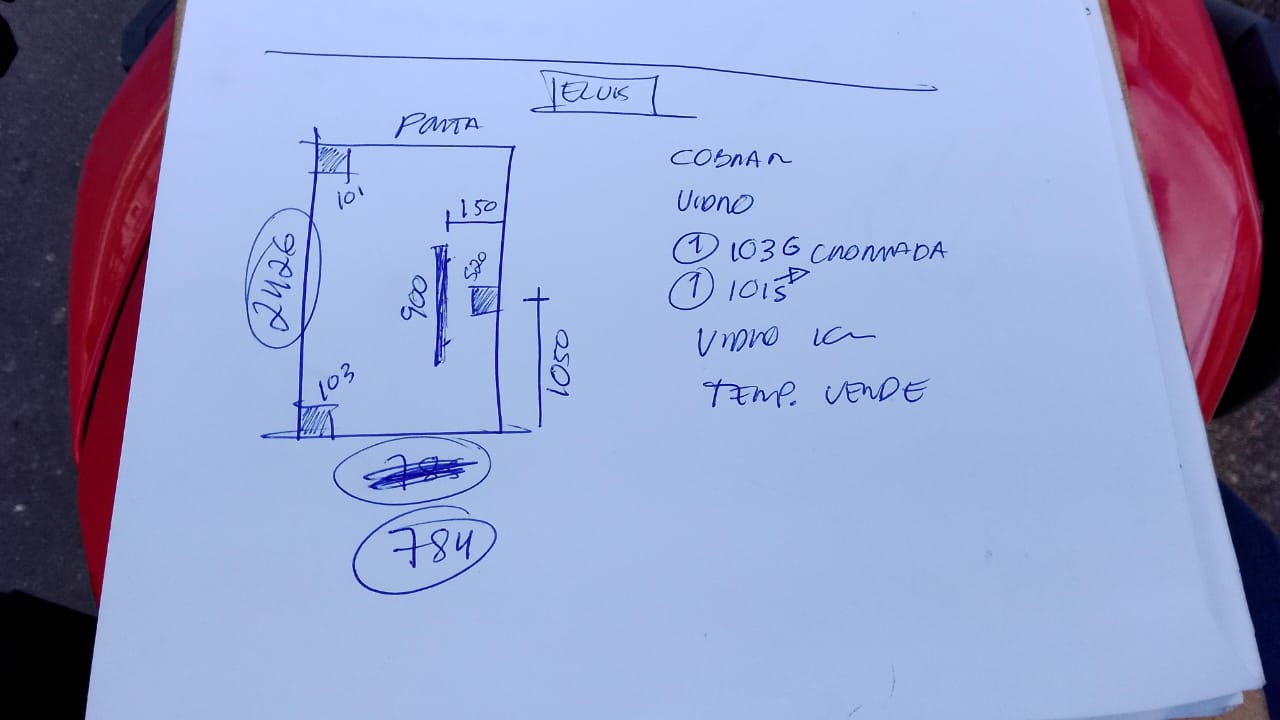 ELVIS
PORTA
101
150
2426
900
520
1050
103
784
COBRAR
VIDRO
① 103G CROMADA
① 101S
VIDRO
TEMP. VERDE